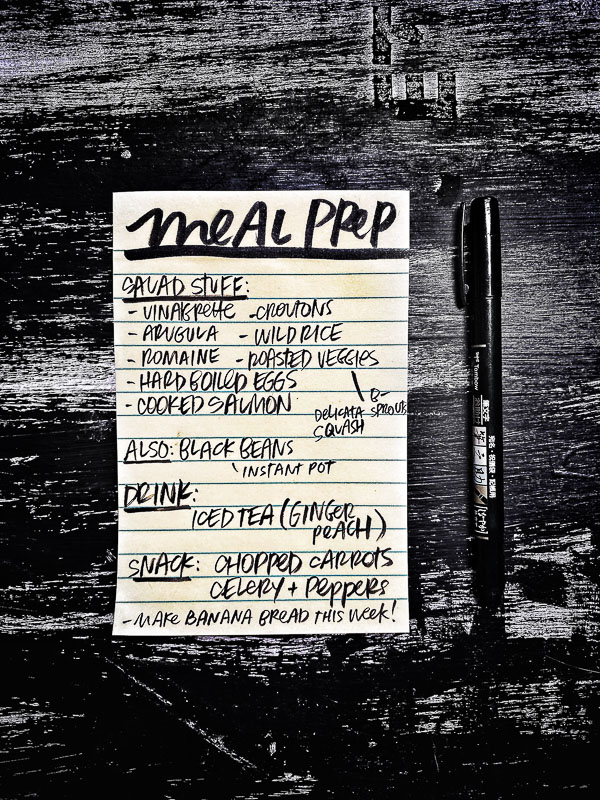 MEAL PREP
SALAD STUFF:
- VINAIGRETTE - CROUTONS
- ARUGULA - WILD RICE
- ROMAINE - ROASTED VEGGIES
- HARD BOILED EGGS
- COOKED SALMON
DELICATA
SQUASH
B-
SPROUTS
ALSO: BLACK BEANS
INSTANT POT
DRINK:
ICED TEA (GINGER
PEACH)
SNACK: CHOPPED CARROTS
CELERY + PEPPERS
- MAKE BANANA BREAD THIS WEEK!
Tombow